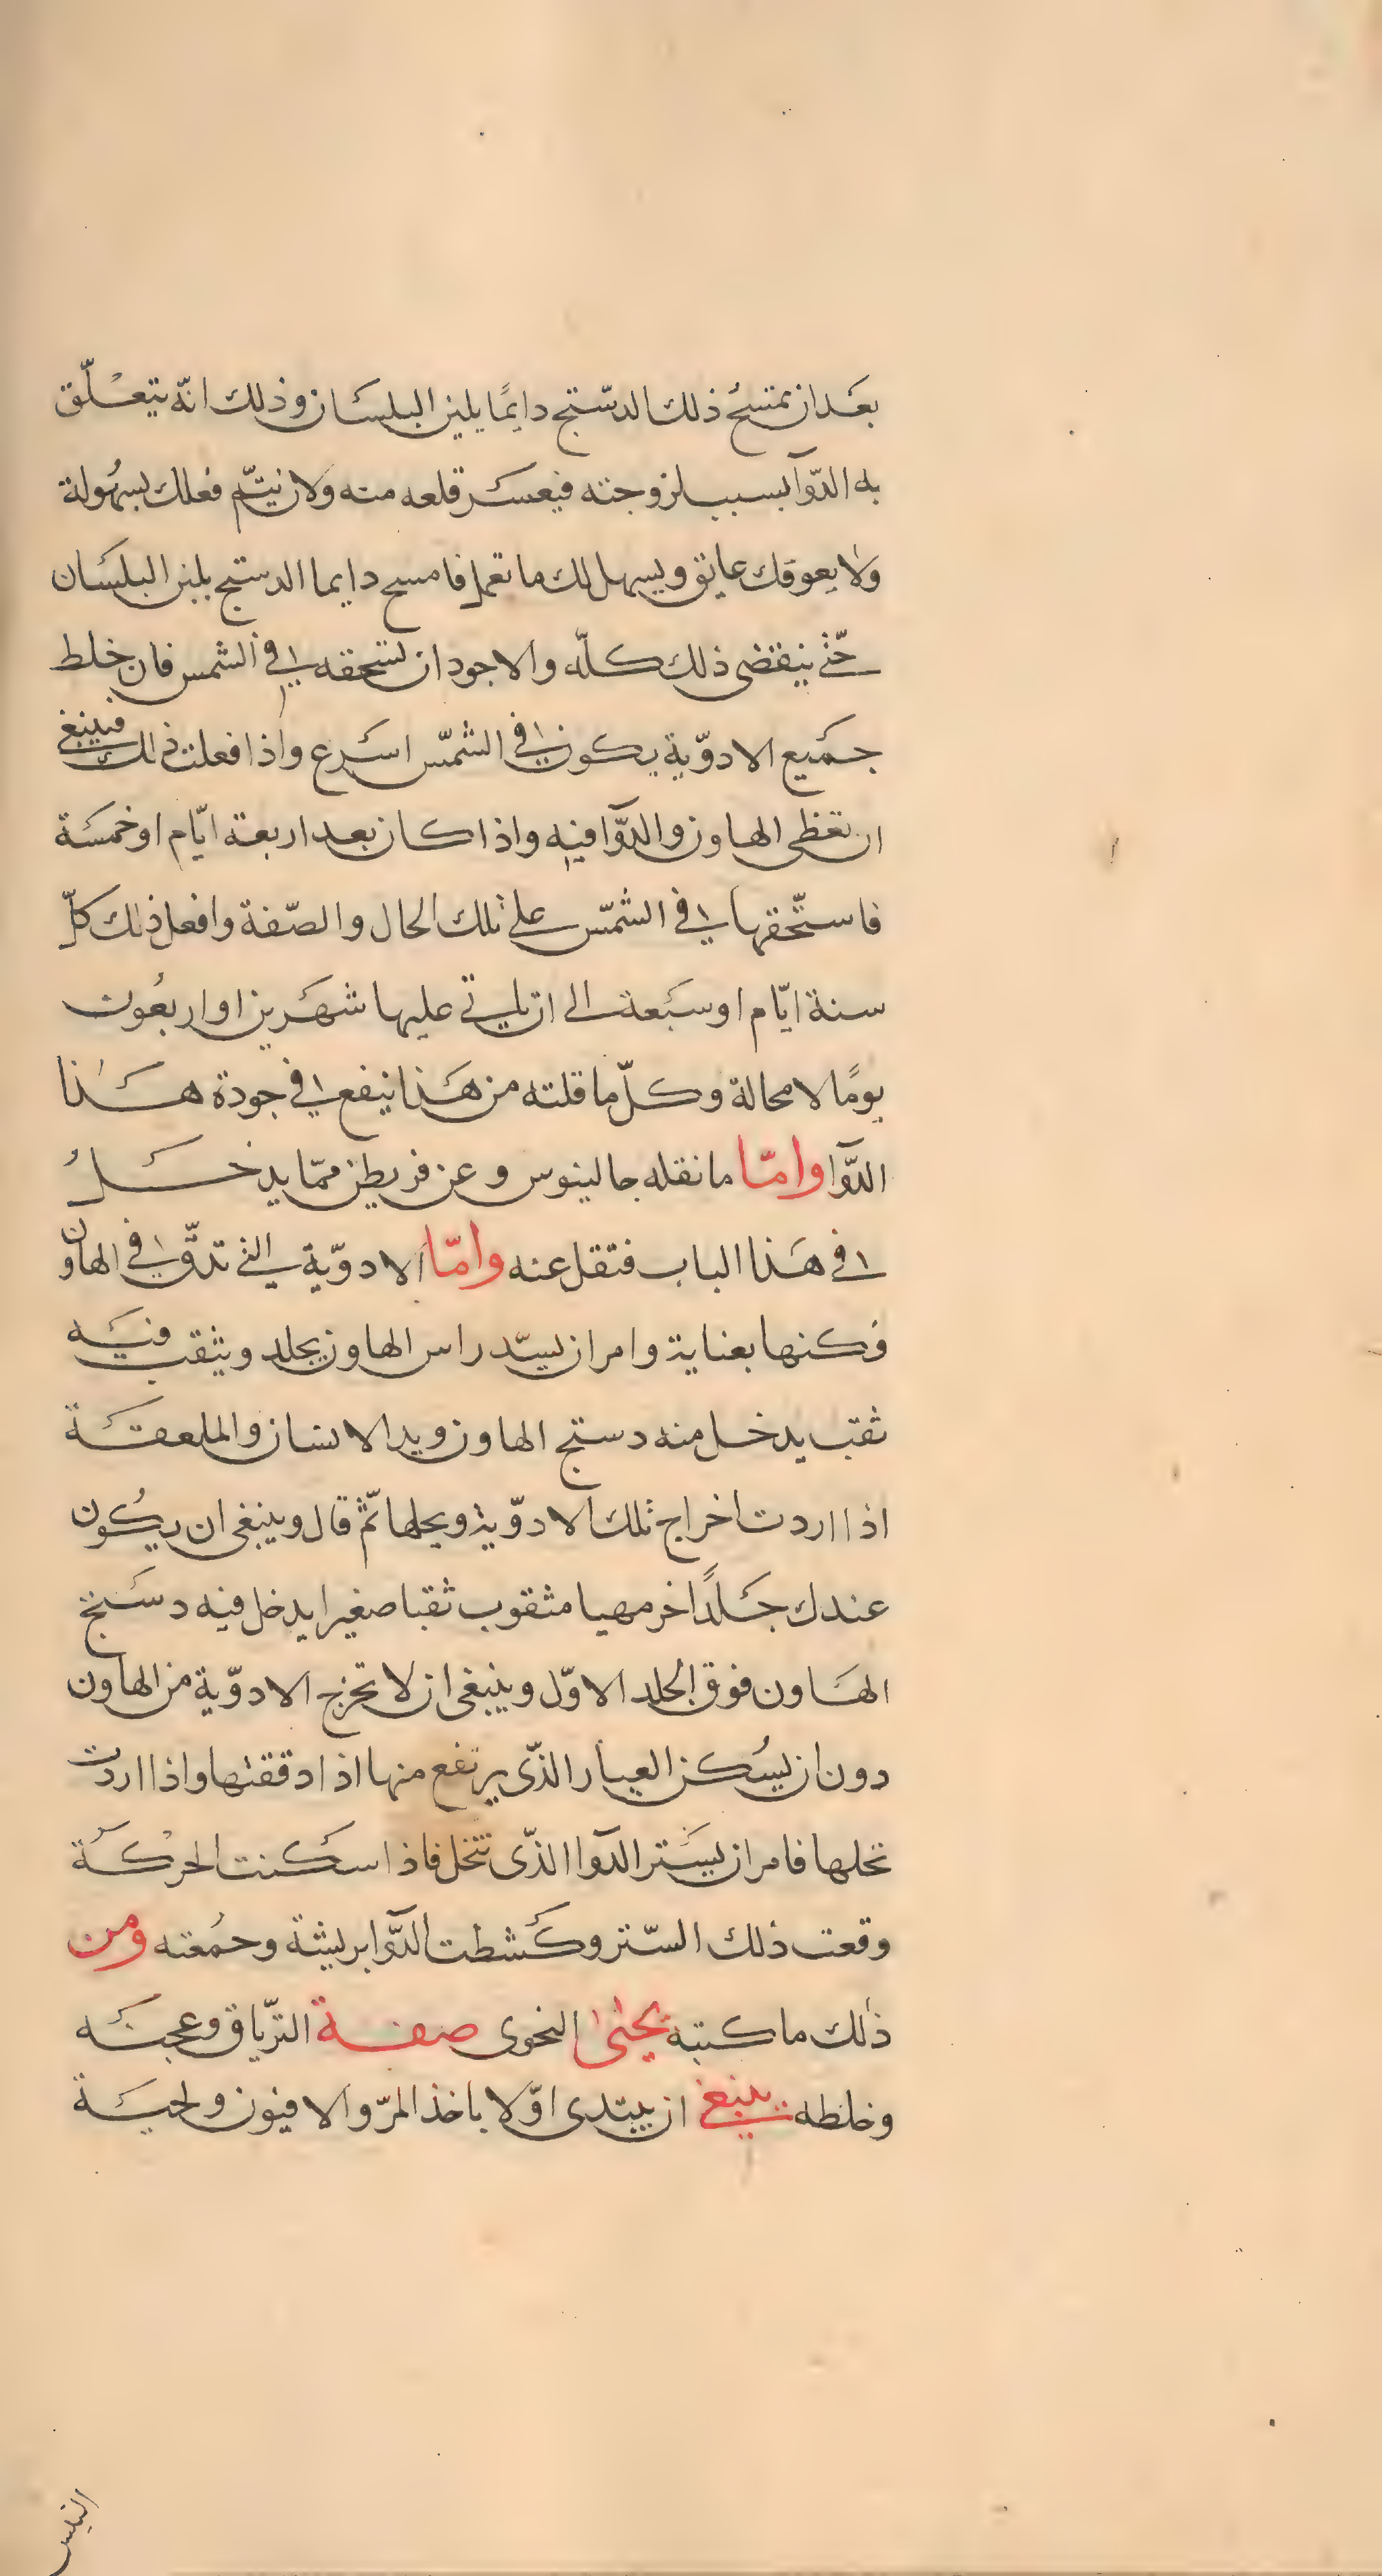 بعَد ان تمتسحُ ذلك الدسّتج دايمًا يلبن البلسَان وذلك انّه يتعْلّق
به الدّوآ بسبب لزوجته فيعسَر قلعه منه ولان يتّم فعلك بسهُولة
ولا يعوقك عايق ويسهل لك ما تعمل فامسح دايما الدستج بلبن البلسَان
حتّى ينقضى ذلك كلّه والاجود ان تسحقه في الشمس فان خلط
جمَيع الادوّية يكون في الشمّس اسَرع واذا فعلت ذلك فينبغى
ان تغطى الهاون والدّوآ فيه واذا كان بعد اربعة ايّام او خمسَة
فاستّحقها في الشمّس على تلك الحال والصّفة وافعل ذلك كلّ
ستة ايّام او سبَعة الى ان ياتي عليها شهَرين او اربعُون
يومًا لا محالة وكلّ ما قلته من هَذا ينفع في جودة هَذا
الدّوآ وامّا ما نقله جالينوس وعن قريطن ممّا يدخَلُ
في هَذا الباب فتقل عنه وامّا الادوّية التي تدقّ في الهاون
فكنها بعناية وامر ان يسّد راس الهاون بجلد ويثقب فيَه
ثقب يدخل منه دستج الهاون ويد الانسان والملعقَة
اذا اردت اخراج تلك الادوّية ويحلها ثمّ قال وينبغى ان يكُون
عندك جَلدًا اخر مهيا مثقوب ثقبا صغيرا يدخل فيه دسَتج
الهَاون فوق الجلد الاوّل وينبغى ان لا تخرج الادوّية من الهاون
دون ان يسُكن الغبار الذّى يرتفع منها اذا دققتها واذا اردت
نخلها فامر ان يسَتر الدوآ الذّى تنخل فاذا سكَنت الحركَة
وقعت ذلك السّتر وكَشطت الدّوآ بريشة وجمُعته ومن
ذلك ما كتبة يحيىٰ النحوى صفة التّرياق وعجنَه
وخلطه ينبغى ان يبتدى اوّلا باخذ المرّ والافيون ولحيَة
التيس